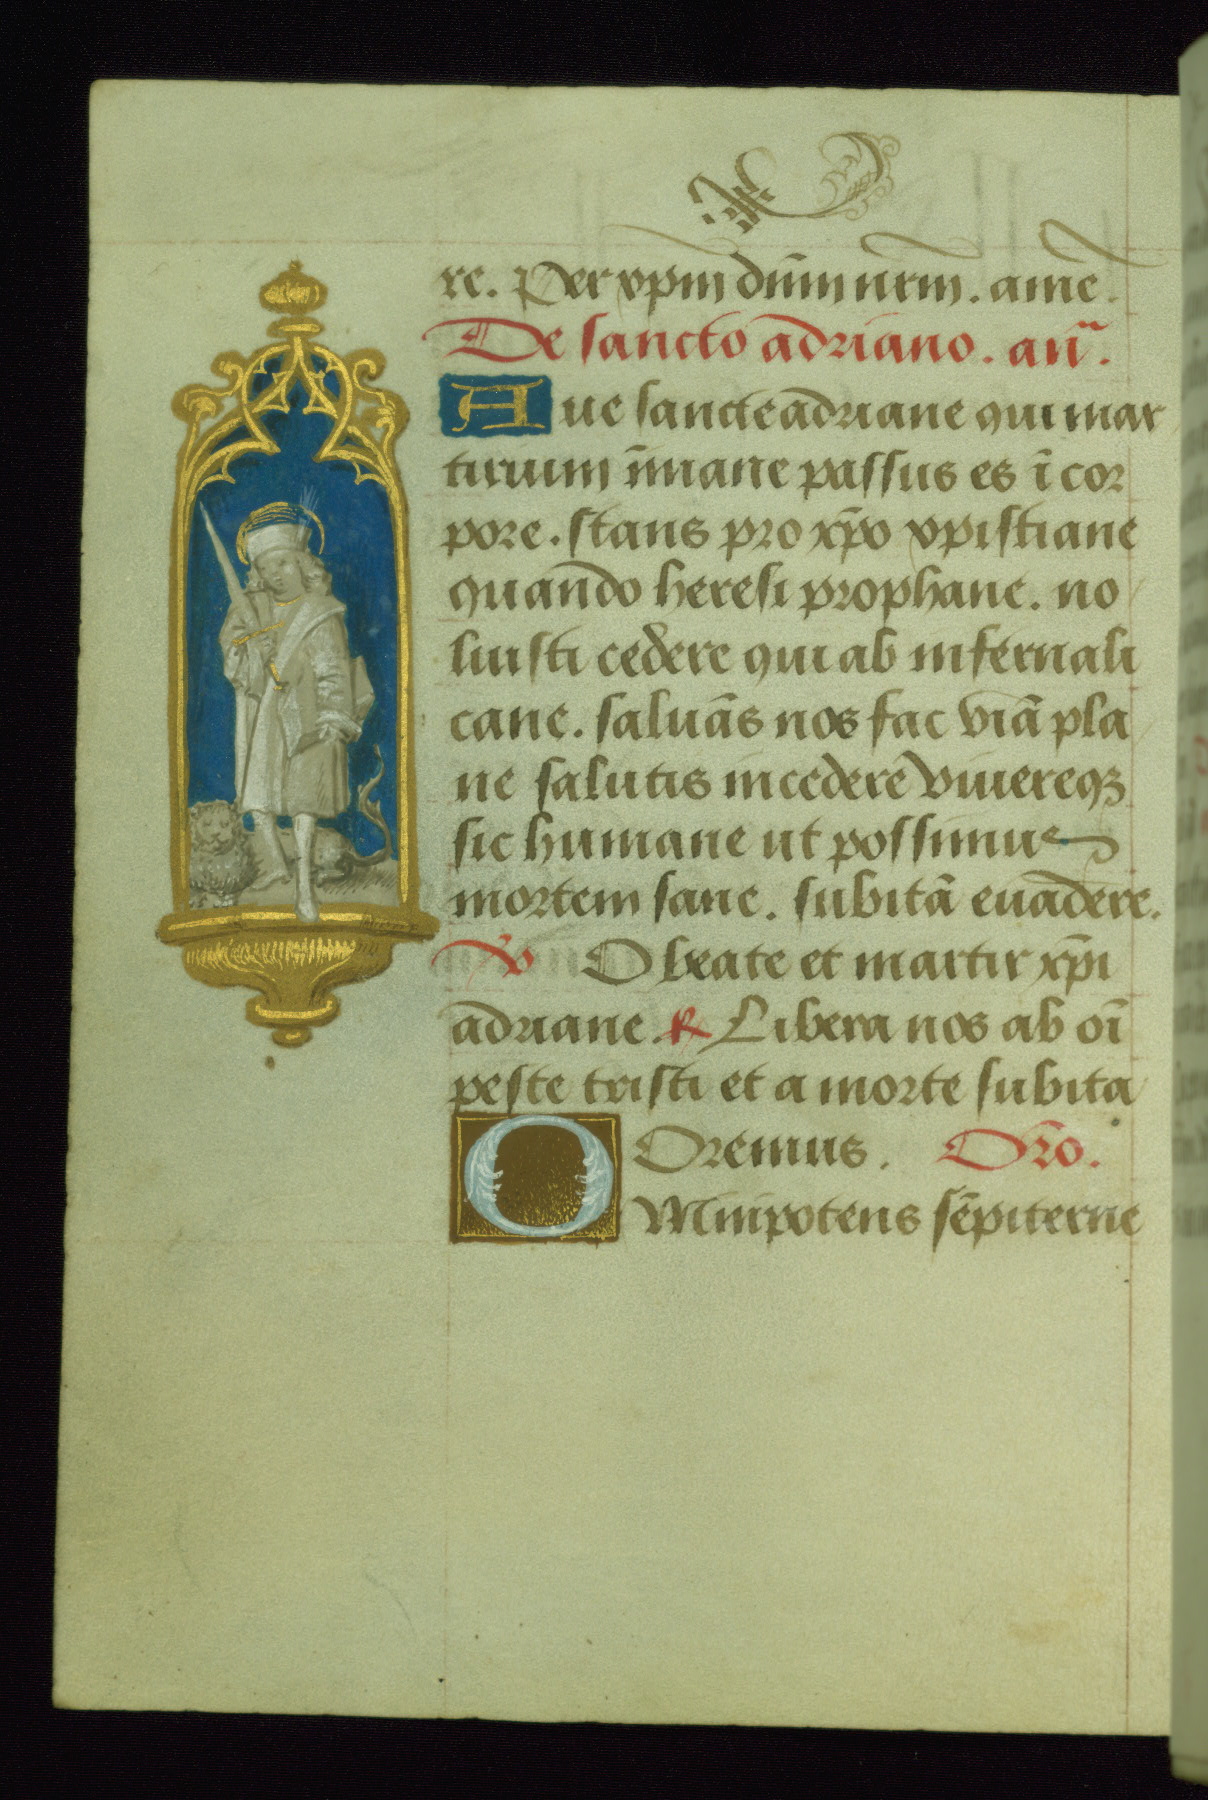 re. Per xpm dūm nrm. amē.
De sancto adriano. añ.
Aue sancte adriane qui mar
tirium īmane passus es ī cor
pore. stans pro xp̄o xpistiane
quando heresi prophane. no
luisti cedere qui ab infernali
cane. saluās nos fac viā pla
ne salutis incedere viuereqꝫ
sic humane ut possimus
mortem sane. subitā euadere.
℣ O beate et martir xp̄i
adriane. ℟ Libera nos ab oī
peste tristi et a morte subita
Oremus. Oro.
OMnipotens sēpiterne